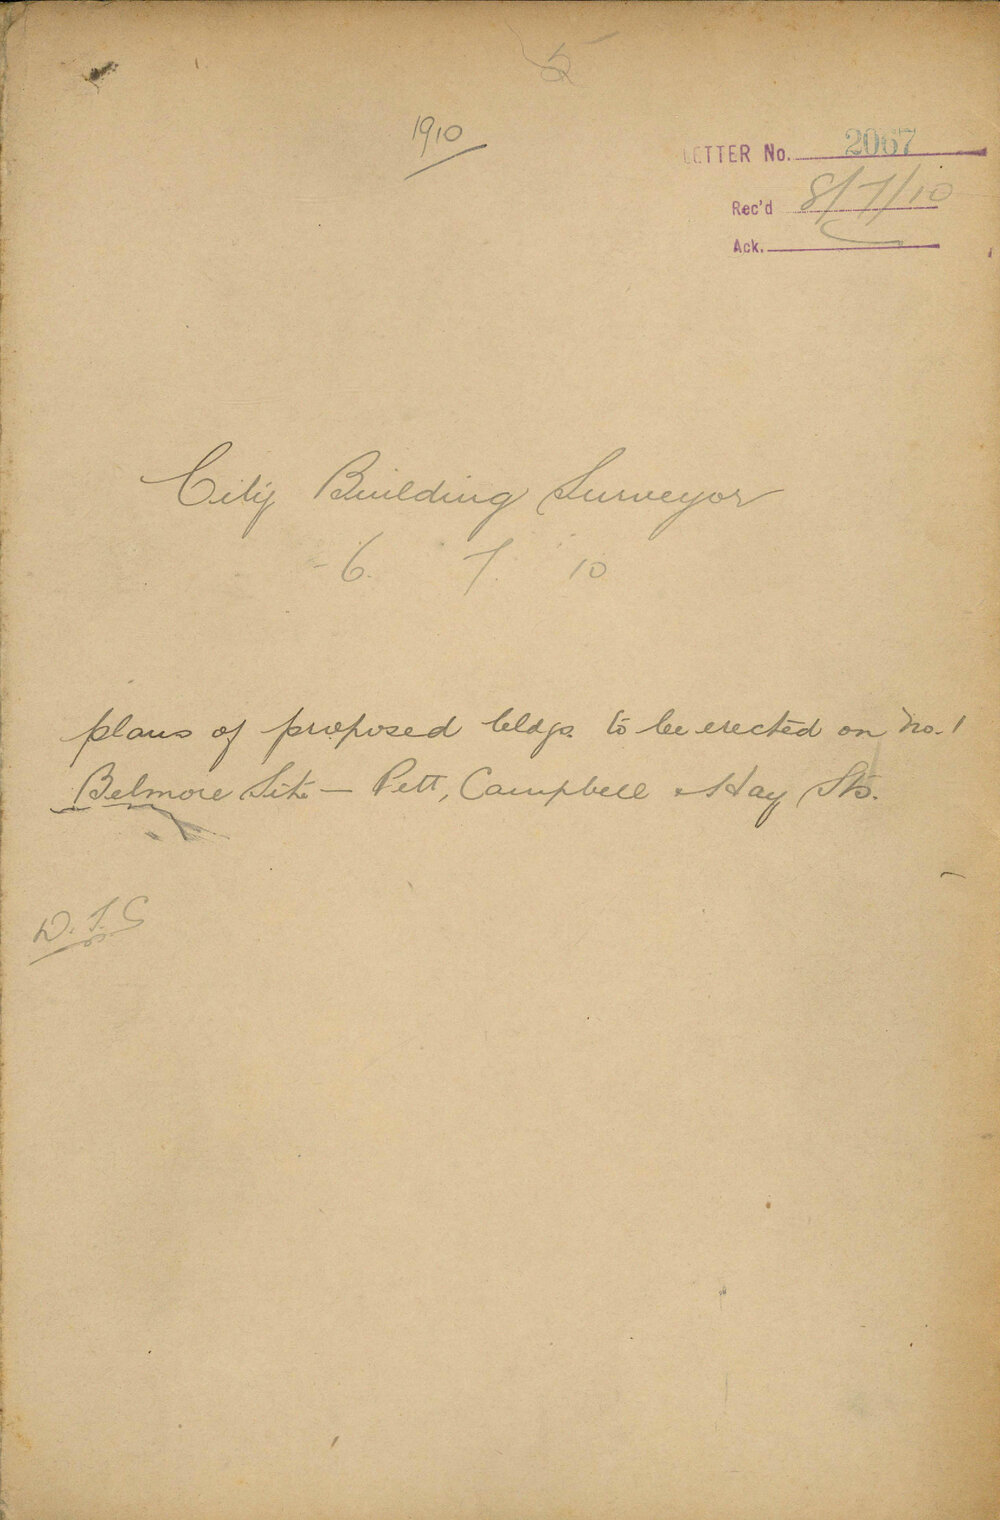 5
1910
LETTER No. 2067
Rec'd 8/7/10
Ack.
City Building Surveyor
6. 7. 10
plans of proposed bldgs. to be erected on No. 1
Belmore Site — Pitt, Campbell & Hay Sts.